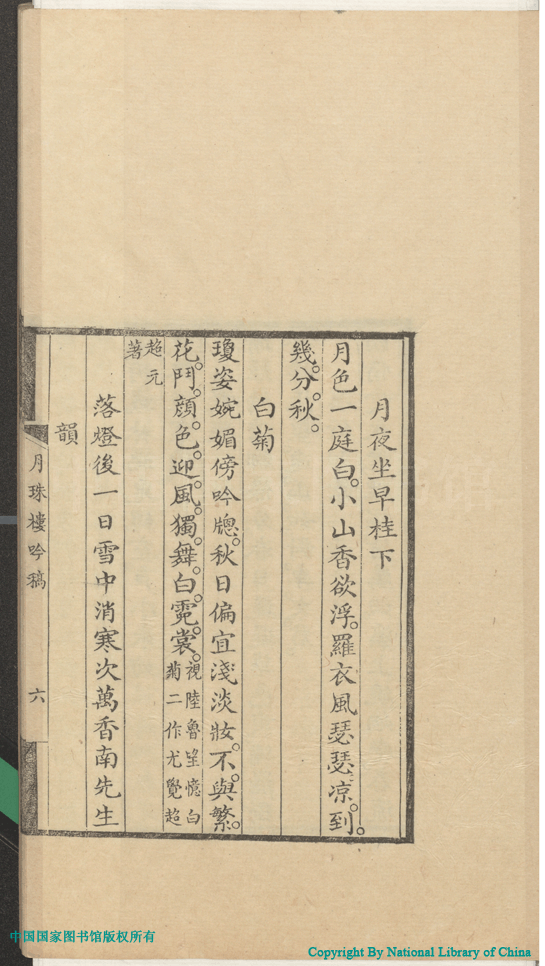 月夜坐早桂下
月色一庭白。小山香欲浮。羅衣風瑟瑟。凉到。
幾。分。秋。
白菊
瓊姿婉媚傍吟牕。秋日偏宜淺淡妝。不。與。繁。
花。鬥。顔。色。迎。風。獨。舞。白。霓。裳。視陸魯望憶白
菊二作尤覺超
超元
著
落燈後一日雪中消寒次萬香南先生
韻
月珠樓吟稿
六
中国国家图书馆版权所有
Copyright By National Library of China